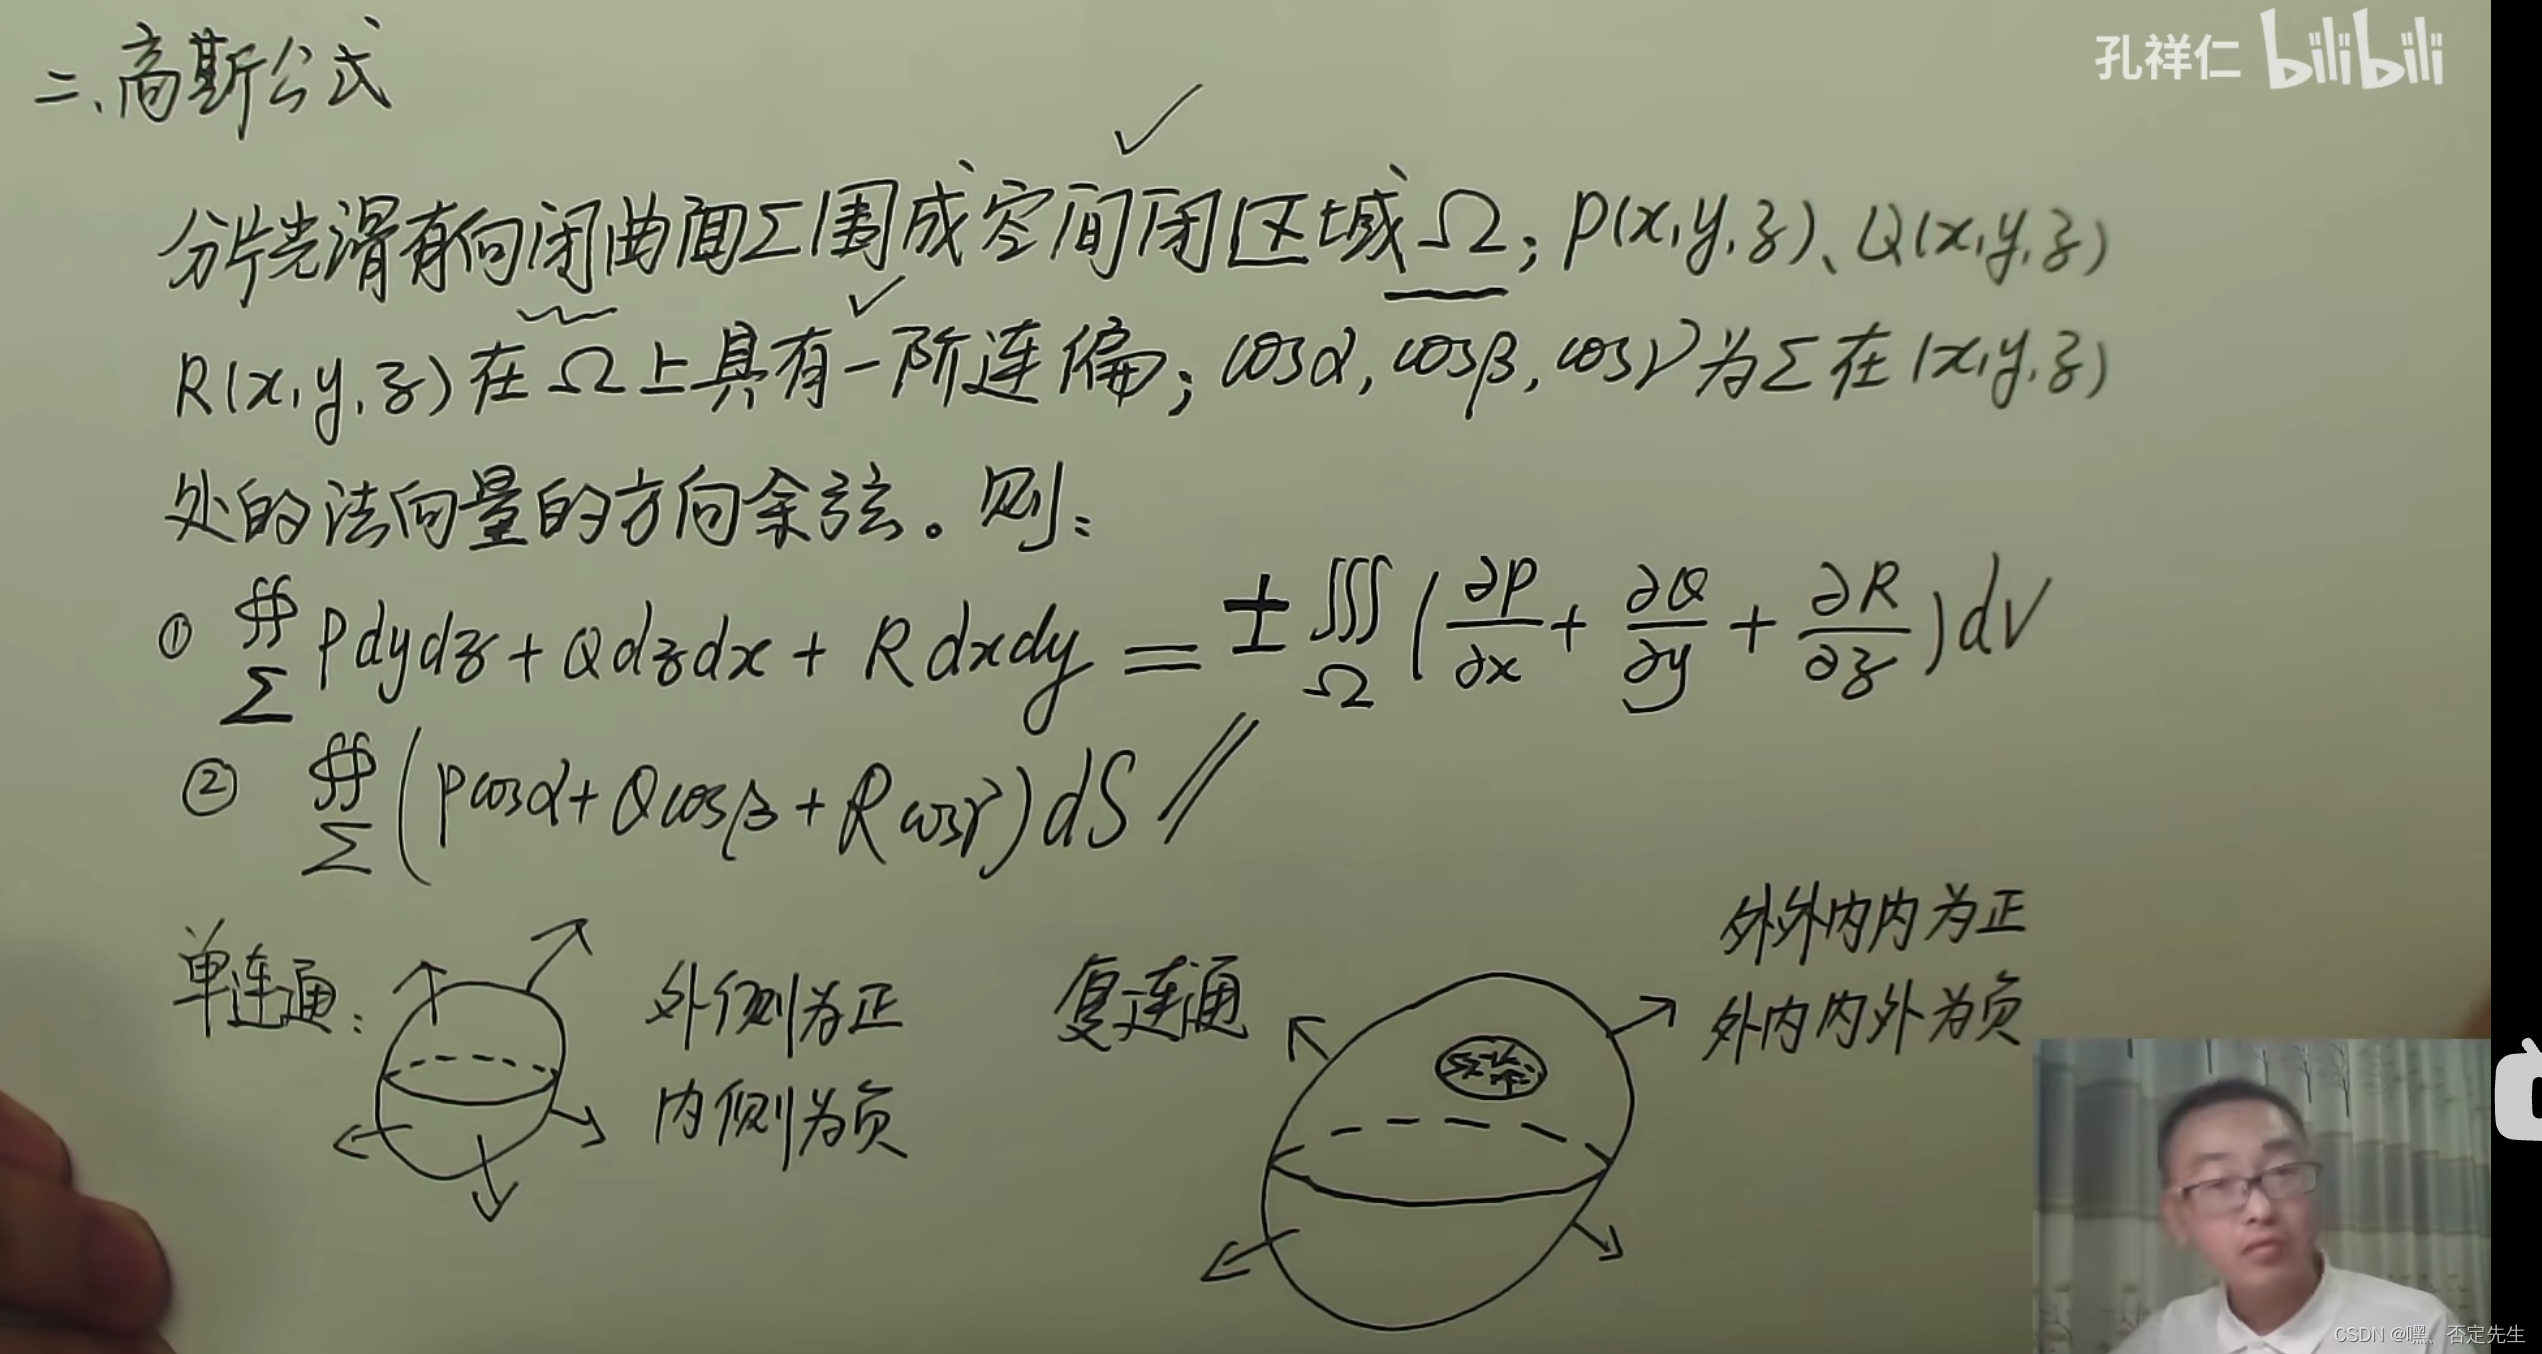 孔祥仁 bilibili
二、高斯公式
分片光滑有向闭曲面Σ围成空间闭区域Ω；P(x,y,z)、Q(x,y,z)
R(x,y,z)在Ω上具有一阶连偏；cosα,cosβ,cosγ为Σ在(x,y,z)
处的法向量的方向余弦。则：
① ∯_Σ Pdydz+Qdzdx+Rdxdy=±∭_Ω(∂P/∂x+∂Q/∂y+∂R/∂z)dV
② ∯_Σ(Pcosα+Qcosβ+Rcosγ)dS //
单连通：
外侧为正
内侧为负
复连通
外外内内为正
外内内外为负
CSDN @嘿、否定先生